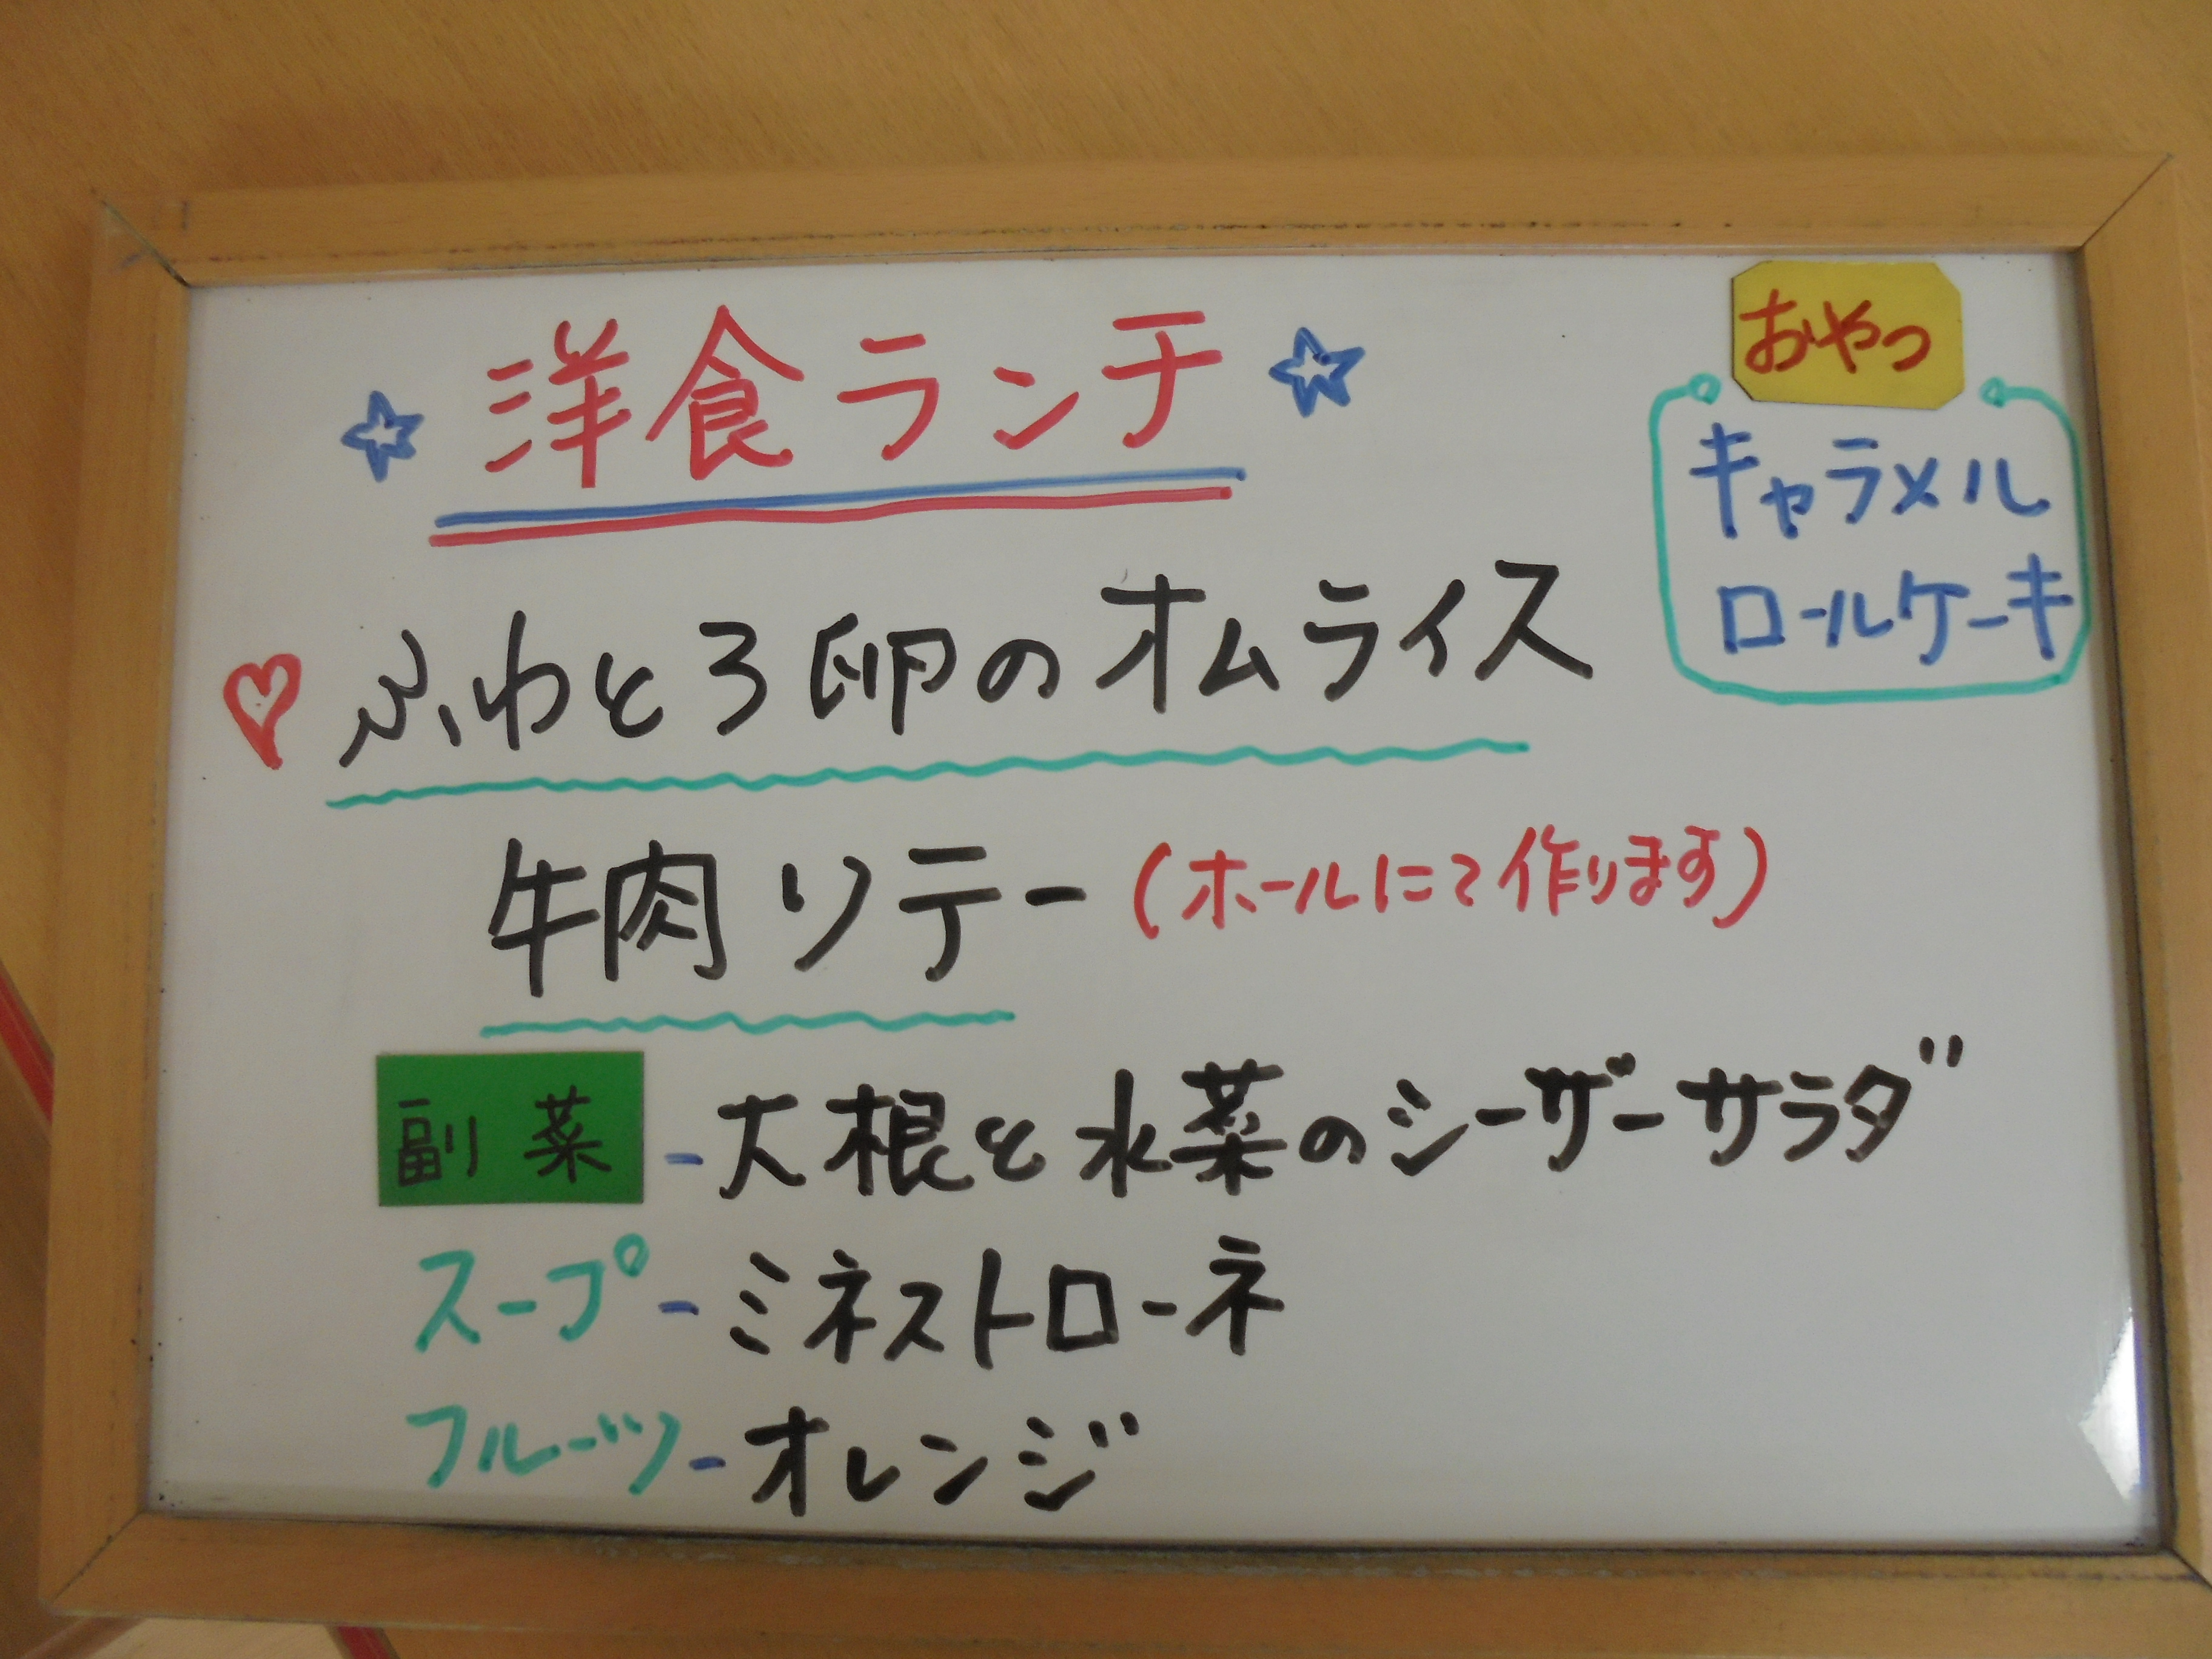 洋食ランチ
おやつ
キャラメル
ロールケーキ
ふわとろ卵のオムライス
牛肉ソテー(ホールにて作ります)
副菜-大根と水菜のシーザーサラダ
スープ-ミネストローネ
フルーツ-オレンジ